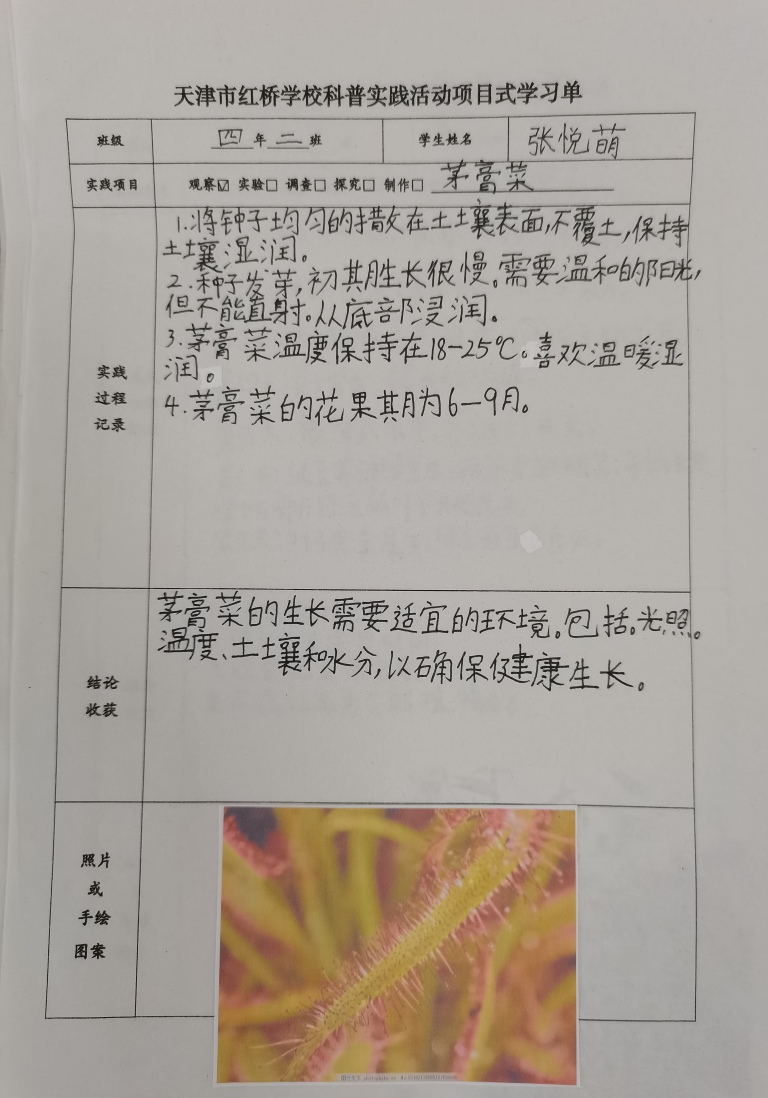 天津市红桥学校科普实践活动项目式学习单
班级 四 年 二 班 学生姓名 张悦萌
实践项目 观察☑ 实验□ 调查□ 探究□ 制作□ 茅膏菜
实践
过程
记录
1.将钟子均匀的撒在土土襄表面,不覆土,保持
土壤湿润。
2.种子发芽,初期生长很慢。需要温和的阳光,
但不能直射。从底部浸润。
3.茅膏菜温度保持在18-25℃。喜欢温暖湿
润。
4.茅膏菜的花果期为6-9月。
结论
收获
茅膏菜的生长需要适宜的环境。包括。光照。
温度、土壤和水分,以确保健康生长。
照片
或
手绘
图案